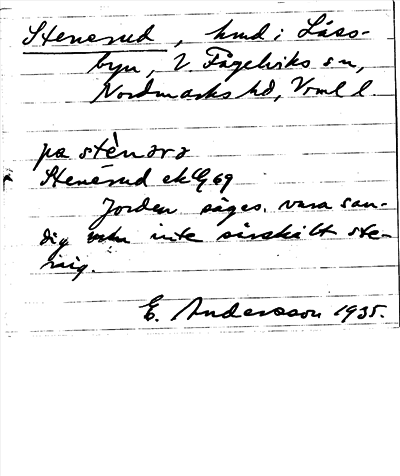 Stenerud, hmd i Låss-
byn, V. Fågelviks sn,
Nordmarks hd, Vrml l.
pa stènərə
Stenerud ekG69
Jorden säges vara san-
dig men inte särskilt ste-
nig.
E. Andersson 1935.